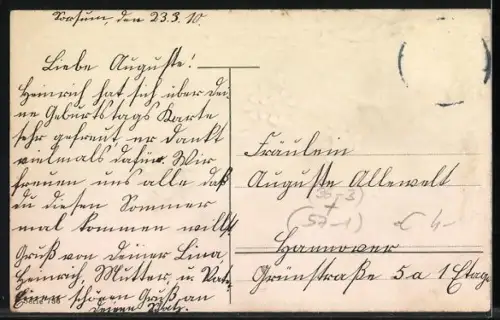 Sorsum, den 23.3.10.
Liebe Auguste!
Heinrich hat sich über dei-
ne Geburtstags Karte
sehr gefreut er dankt
vielmals dafür. Wir
freuen uns alle daß
du diesen Sommer
mal kommen willst
Gruß von deiner Lina,
Heinrich, Mutter, u Vat.
einen schönen Gruß an
deinen
Serie 788
Fräulein
Auguste Allewelt
(36-3)
+
(57-1)
Hannover
Grünstraße 5a 1 Etag.